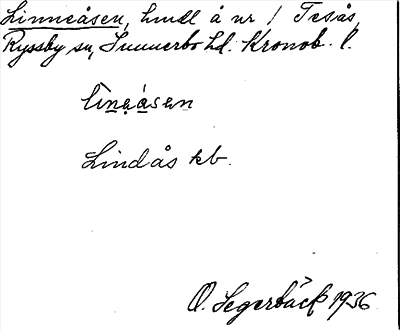 Linneåsen, hmdl å nr 1 Tesås,
Ryssby sn, Sunnerbo hd. Kronob. l.
lìneásen
Lindås kb.
O. Segerbäck 1936